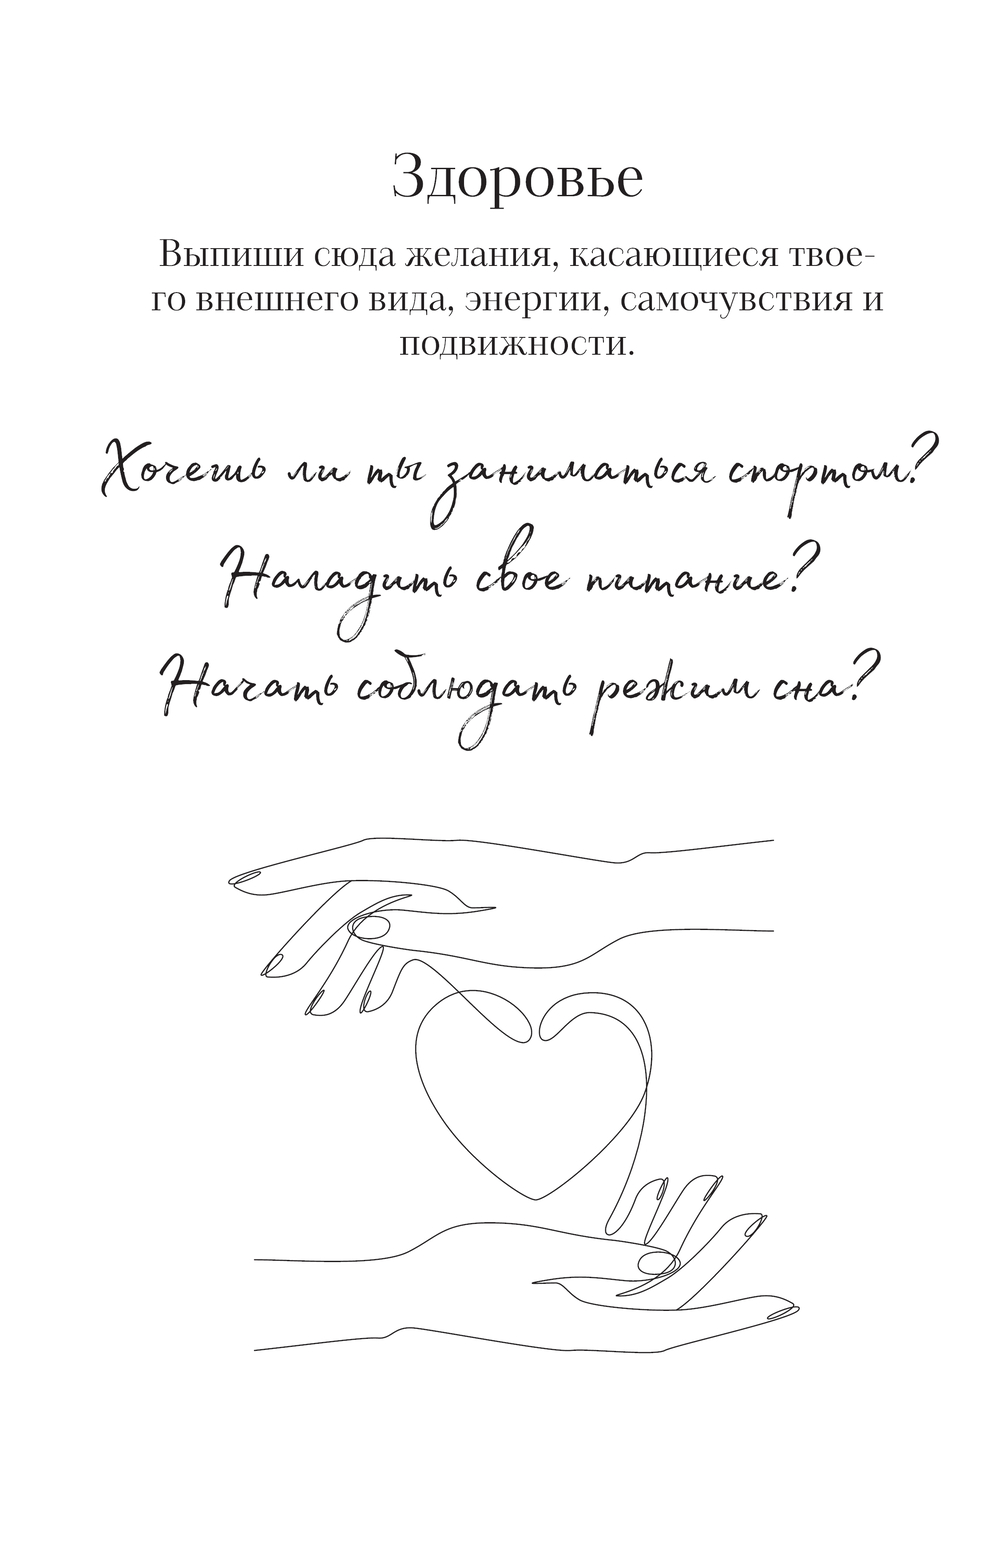 Здоровье
Выпиши сюда желания, касающиеся твое-
го внешнего вида, энергии, самочувствия и
подвижности.
Хочешь ли ты заниматься спортом?
Наладить свое питание?
Начать соблюдать режим сна?